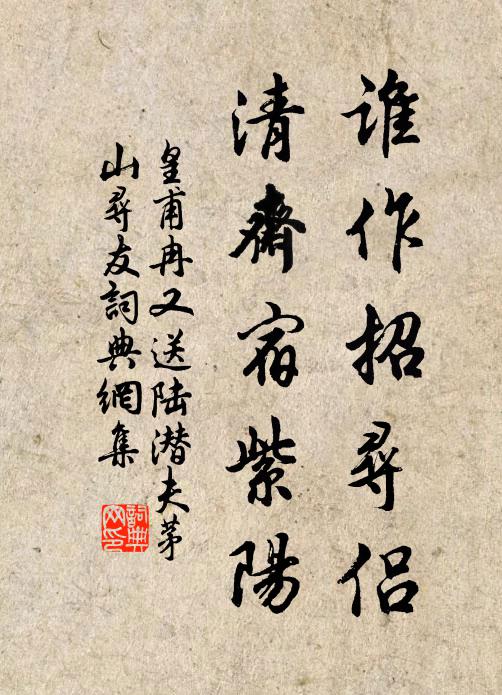 誰作招尋侶
清齋宿紫陽
皇甫冉又送陆潜夫茅
山尋友詞典網集
詞典
网印